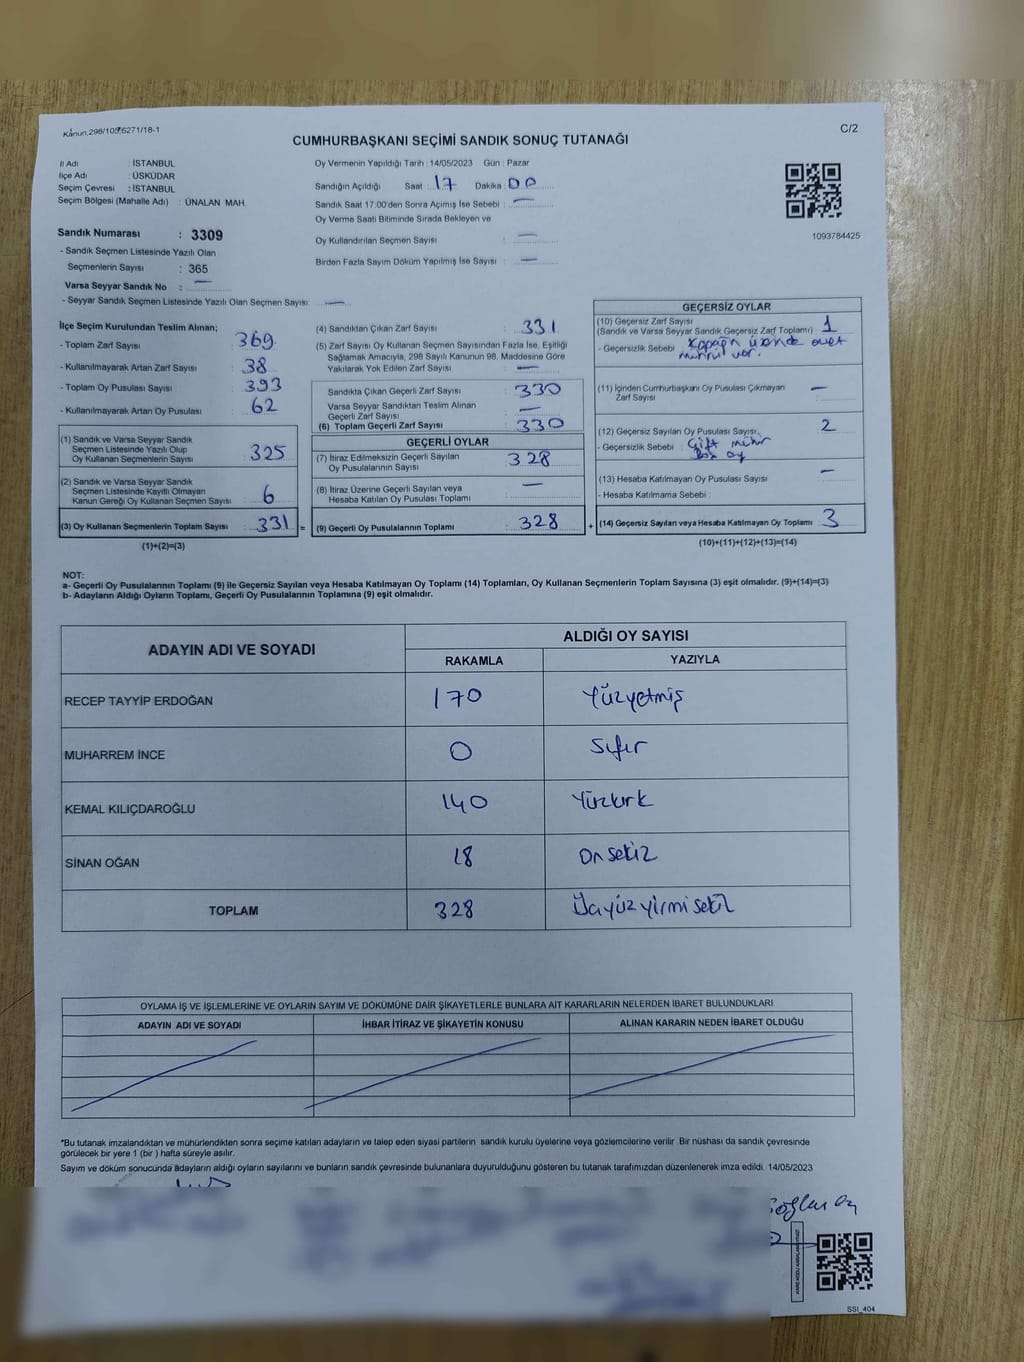 Kanun.298/105,6271/18-1
C/2
CUMHURBAŞKANI SEÇİMİ SANDIK SONUÇ TUTANAĞI
İl Adı : İSTANBUL
İlçe Adı : ÜSKÜDAR
Seçim Çevresi : İSTANBUL
Seçim Bölgesi (Mahalle Adı) : ÜNALAN MAH.
Sandık Numarası : 3309
- Sandık Seçmen Listesinde Yazılı Olan
Seçmenlerin Sayısı : 365
Varsa Seyyar Sandık No : —
- Seyyar Sandık Seçmen Listesinde Yazılı Olan Seçmen Sayısı: —
Oy Vermenin Yapıldığı Tarih : 14/05/2023 Gün : Pazar
Sandığın Açıldığı Saat : 17 Dakika : 00
Sandık Saat 17:00'den Sonra Açılmış İse Sebebi : —
Oy Verme Saati Bitiminde Sırada Bekleyen ve
Oy Kullandırılan Seçmen Sayısı : —
Birden Fazla Sayım Döküm Yapılmış İse Sayısı : —
1093784425
İlçe Seçim Kurulundan Teslim Alınan;
- Toplam Zarf Sayısı : 369
- Kullanılmayarak Artan Zarf Sayısı : 38
- Toplam Oy Pusulası Sayısı : 393
- Kullanılmayarak Artan Oy Pusulası : 62
(1) Sandık ve Varsa Seyyar Sandık
Seçmen Listesinde Yazılı Olup
Oy Kullanan Seçmenlerin Sayısı : 325
(2) Sandık ve Varsa Seyyar Sandık
Seçmen Listesinde Kayıtlı Olmayan
Kanun Gereği Oy Kullanan Seçmen Sayısı : 6
(3) Oy Kullanan Seçmenlerin Toplam Sayısı : 331 =
(1)+(2)=(3)
(4) Sandıktan Çıkan Zarf Sayısı : 331
(5) Zarf Sayısı Oy Kullanan Seçmen Sayısından Fazla İse, Eşitliği
Sağlamak Amacıyla, 298 Sayılı Kanunun 98. Maddesine Göre
Yakılarak Yok Edilen Zarf Sayısı : —
Sandıkta Çıkan Geçerli Zarf Sayısı : 330
Varsa Seyyar Sandıktan Teslim Alınan
Geçerli Zarf Sayısı : —
(6) Toplam Geçerli Zarf Sayısı : 330
GEÇERLİ OYLAR
(7) İtiraz Edilmeksizin Geçerli Sayılan
Oy Pusulalarının Sayısı : 328
(8) İtiraz Üzerine Geçerli Sayılan ve
Hesaba Katılan Oy Pusulası Toplamı : —
(9) Geçerli Oy Pusulalarının Toplamı : 328 +
GEÇERSİZ OYLAR
(10) Geçersiz Zarf Sayısı
(Sandık ve Varsa Seyyar Sandık Geçersiz Zarf Toplamı) : 1
- Geçersizlik Sebebi : Kapağın üzerinde evet
mührü var.
(11) İçinden Cumhurbaşkanı Oy Pusulası Çıkmayan
Zarf Sayısı : —
(12) Geçersiz Sayılan Oy Pusulası Sayısı : 2
- Geçersizlik Sebebi : Çift mühür
Boş oy
(13) Hesaba Katılmayan Oy Pusulası Sayısı : —
- Hesaba Katılmama Sebebi :
(14) Geçersiz Sayılan veya Hesaba Katılmayan Oy Toplamı : 3
(10)+(11)+(12)+(13)=(14)
NOT:
a- Geçerli Oy Pusulalarının Toplamı (9) ile Geçersiz Sayılan veya Hesaba Katılmayan Oy Toplamı (14) Toplamları, Oy Kullanan Seçmenlerin Toplam Sayısına (3) eşit olmalıdır. (9)+(14)=(3)
b- Adayların Aldığı Oyların Toplamı, Geçerli Oy Pusulalarının Toplamına (9) eşit olmalıdır.
ADAYIN ADI VE SOYADI
ALDIĞI OY SAYISI
RAKAMLA YAZIYLA
RECEP TAYYİP ERDOĞAN 170 Yüzyetmiş
MUHARREM İNCE 0 Sıfır
KEMAL KILIÇDAROĞLU 140 Yüzkırk
SİNAN OĞAN 18 Onsekiz
TOPLAM 328 Üçyüzyirmisekiz
OYLAMA İŞ VE İŞLEMLERİNE VE OYLARIN SAYIM VE DÖKÜMÜNE DAİR ŞİKAYETLERLE BUNLARA AİT KARARLARIN NELERDEN İBARET BULUNDUKLARI
ADAYIN ADI VE SOYADI İHBAR İTİRAZ VE ŞİKAYETİN KONUSU ALINAN KARARIN NEDEN İBARET OLDUĞU
*Bu tutanak imzalandıktan ve mühürlendikten sonra seçime katılan adayların ve talep eden siyasi partilerin sandık kurulu üyelerine veya gözlemcilerine verilir. Bir nüshası da sandık çevresinde
görülecek bir yere 1 (bir ) hafta süreyle asılır.
Sayım ve döküm sonucunda adayların aldığı oyların sayılarını ve bunların sandık çevresinde bulunanlara duyurulduğunu gösteren bu tutanak tarafımızdan düzenlenerek imza edildi. 14/05/2023
SSI_404